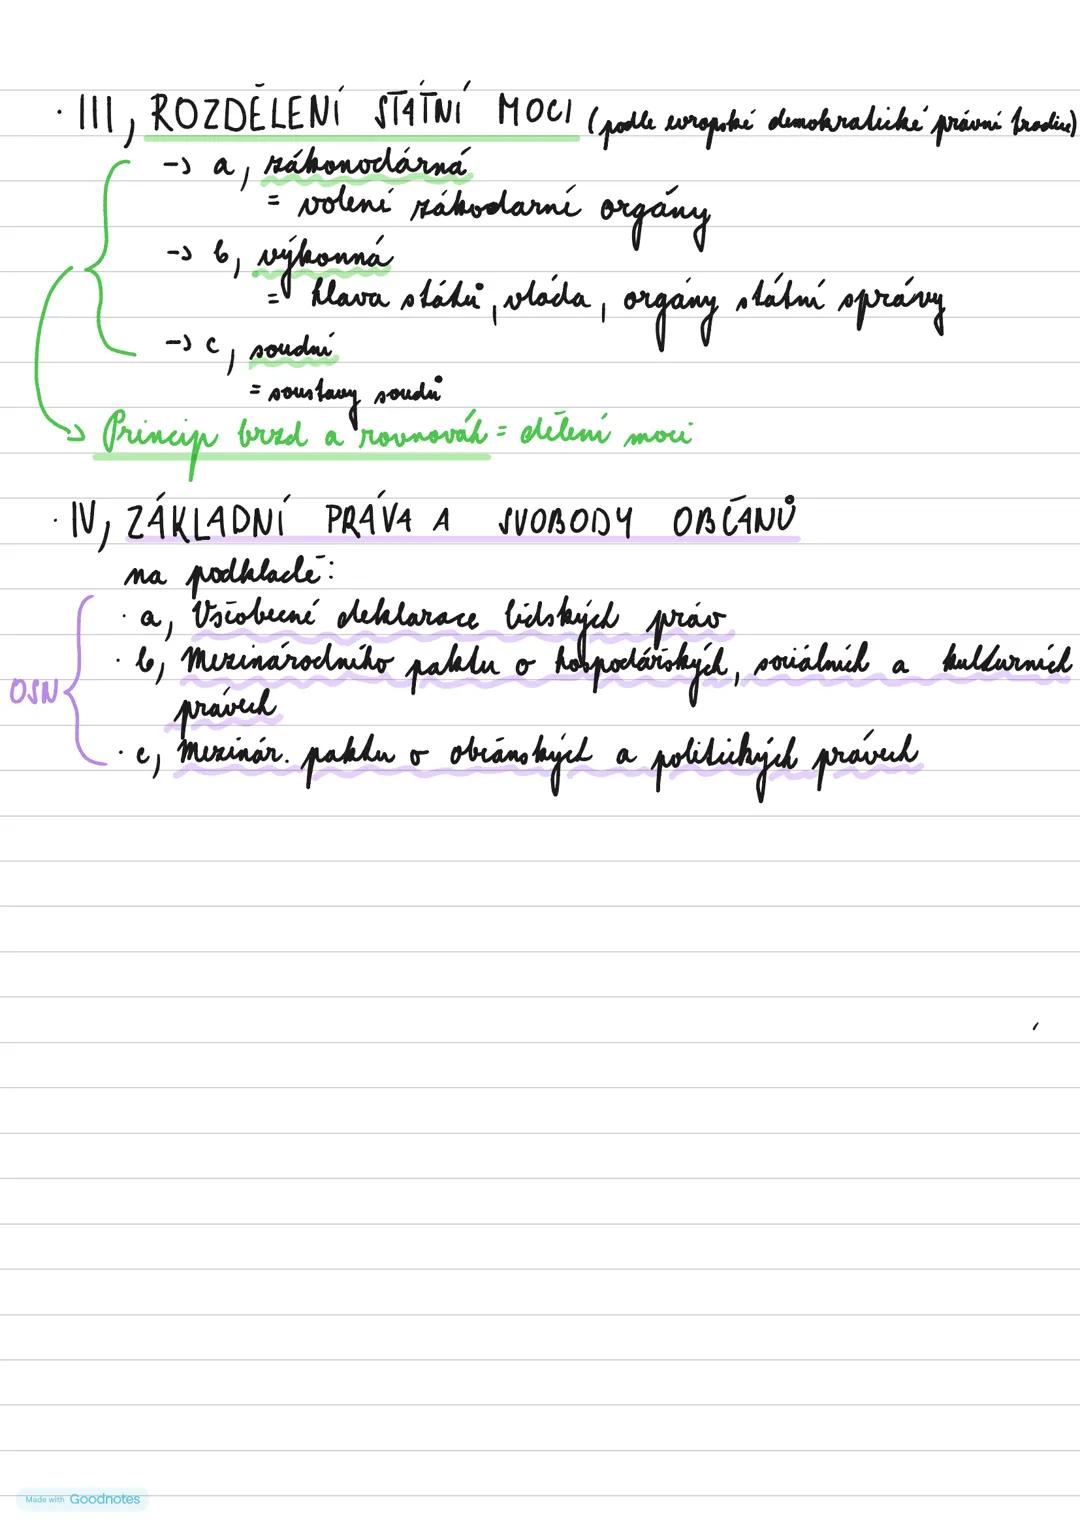 · III, ROZDĚLENÍ STÁTNÍ MOCI (podle evropské demokratické právní tradice)
-> a, zákonodárná
= volení zákodarní orgány
-> b, výkonná
= hlava státu, vláda, orgány státní správy
-> c, soudní
= soustavy soudů
-> Princip brzd a rovnováh = dělení moci
· IV, ZÁKLADNÍ PRÁVA A SVOBODY OBČANŮ
na podkladě:
· a, Všeobecné deklarace lidských práv
· b, Mezinárodního paktu o hospodářských, sociálních a kulturních
OSN
právech
· c, Mezinár. paktu o občanských a politických právech
Made with Goodnotes